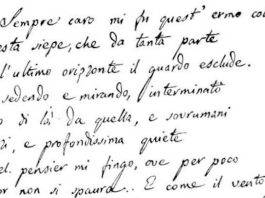 Sempre caro mi fu quest'ermo co
esta siepe, che da tanta parte
l'ultimo orizzonte il guardo esclude.
sedendo e mirando, interminato
o di là da quella, e sovrumani
zi, e profondissima quiete
el pensier mi fingo, ove per poco
or non si spaura.. E come il vento